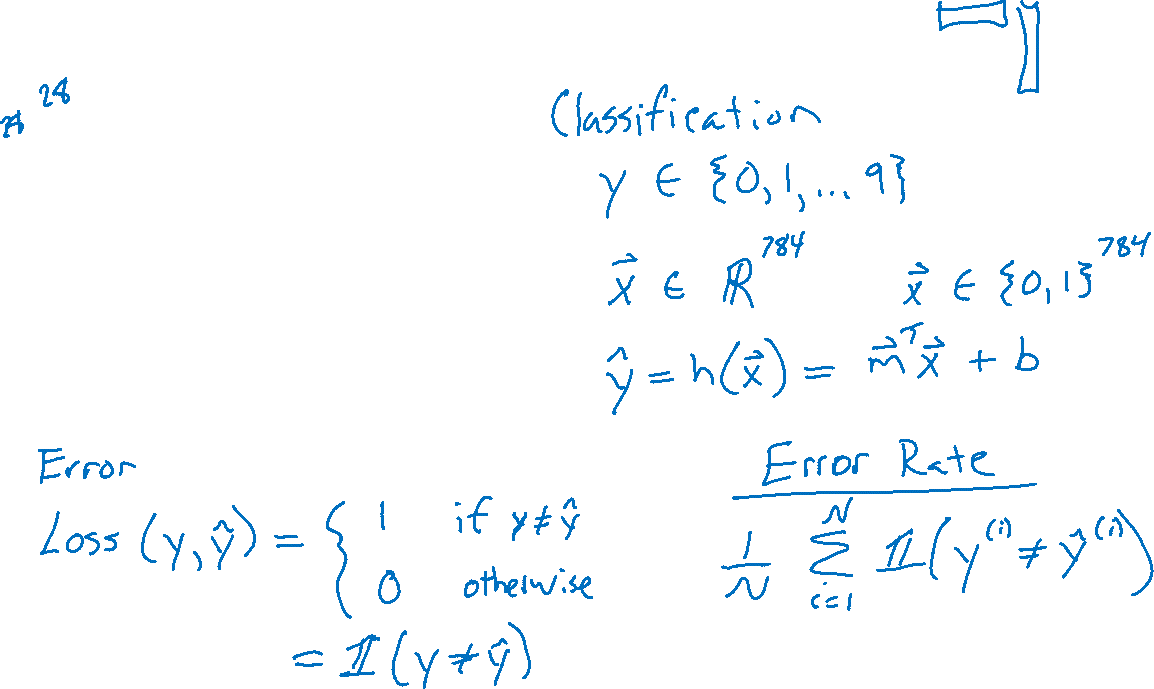 28
Classification
y ∈ {0, 1, ... 9}
x⃗ ∈ ℝ^784    x⃗ ∈ {0, 1}^784
ŷ = h(x⃗) = m⃗^T x⃗ + b
Error
Loss (y, ŷ) = { 1 if y ≠ ŷ
0 otherwise
= 𝟙(y ≠ ŷ)
Error Rate
1/N ∑_{i=1}^{N} 𝟙(y^(i) ≠ ŷ^(i))